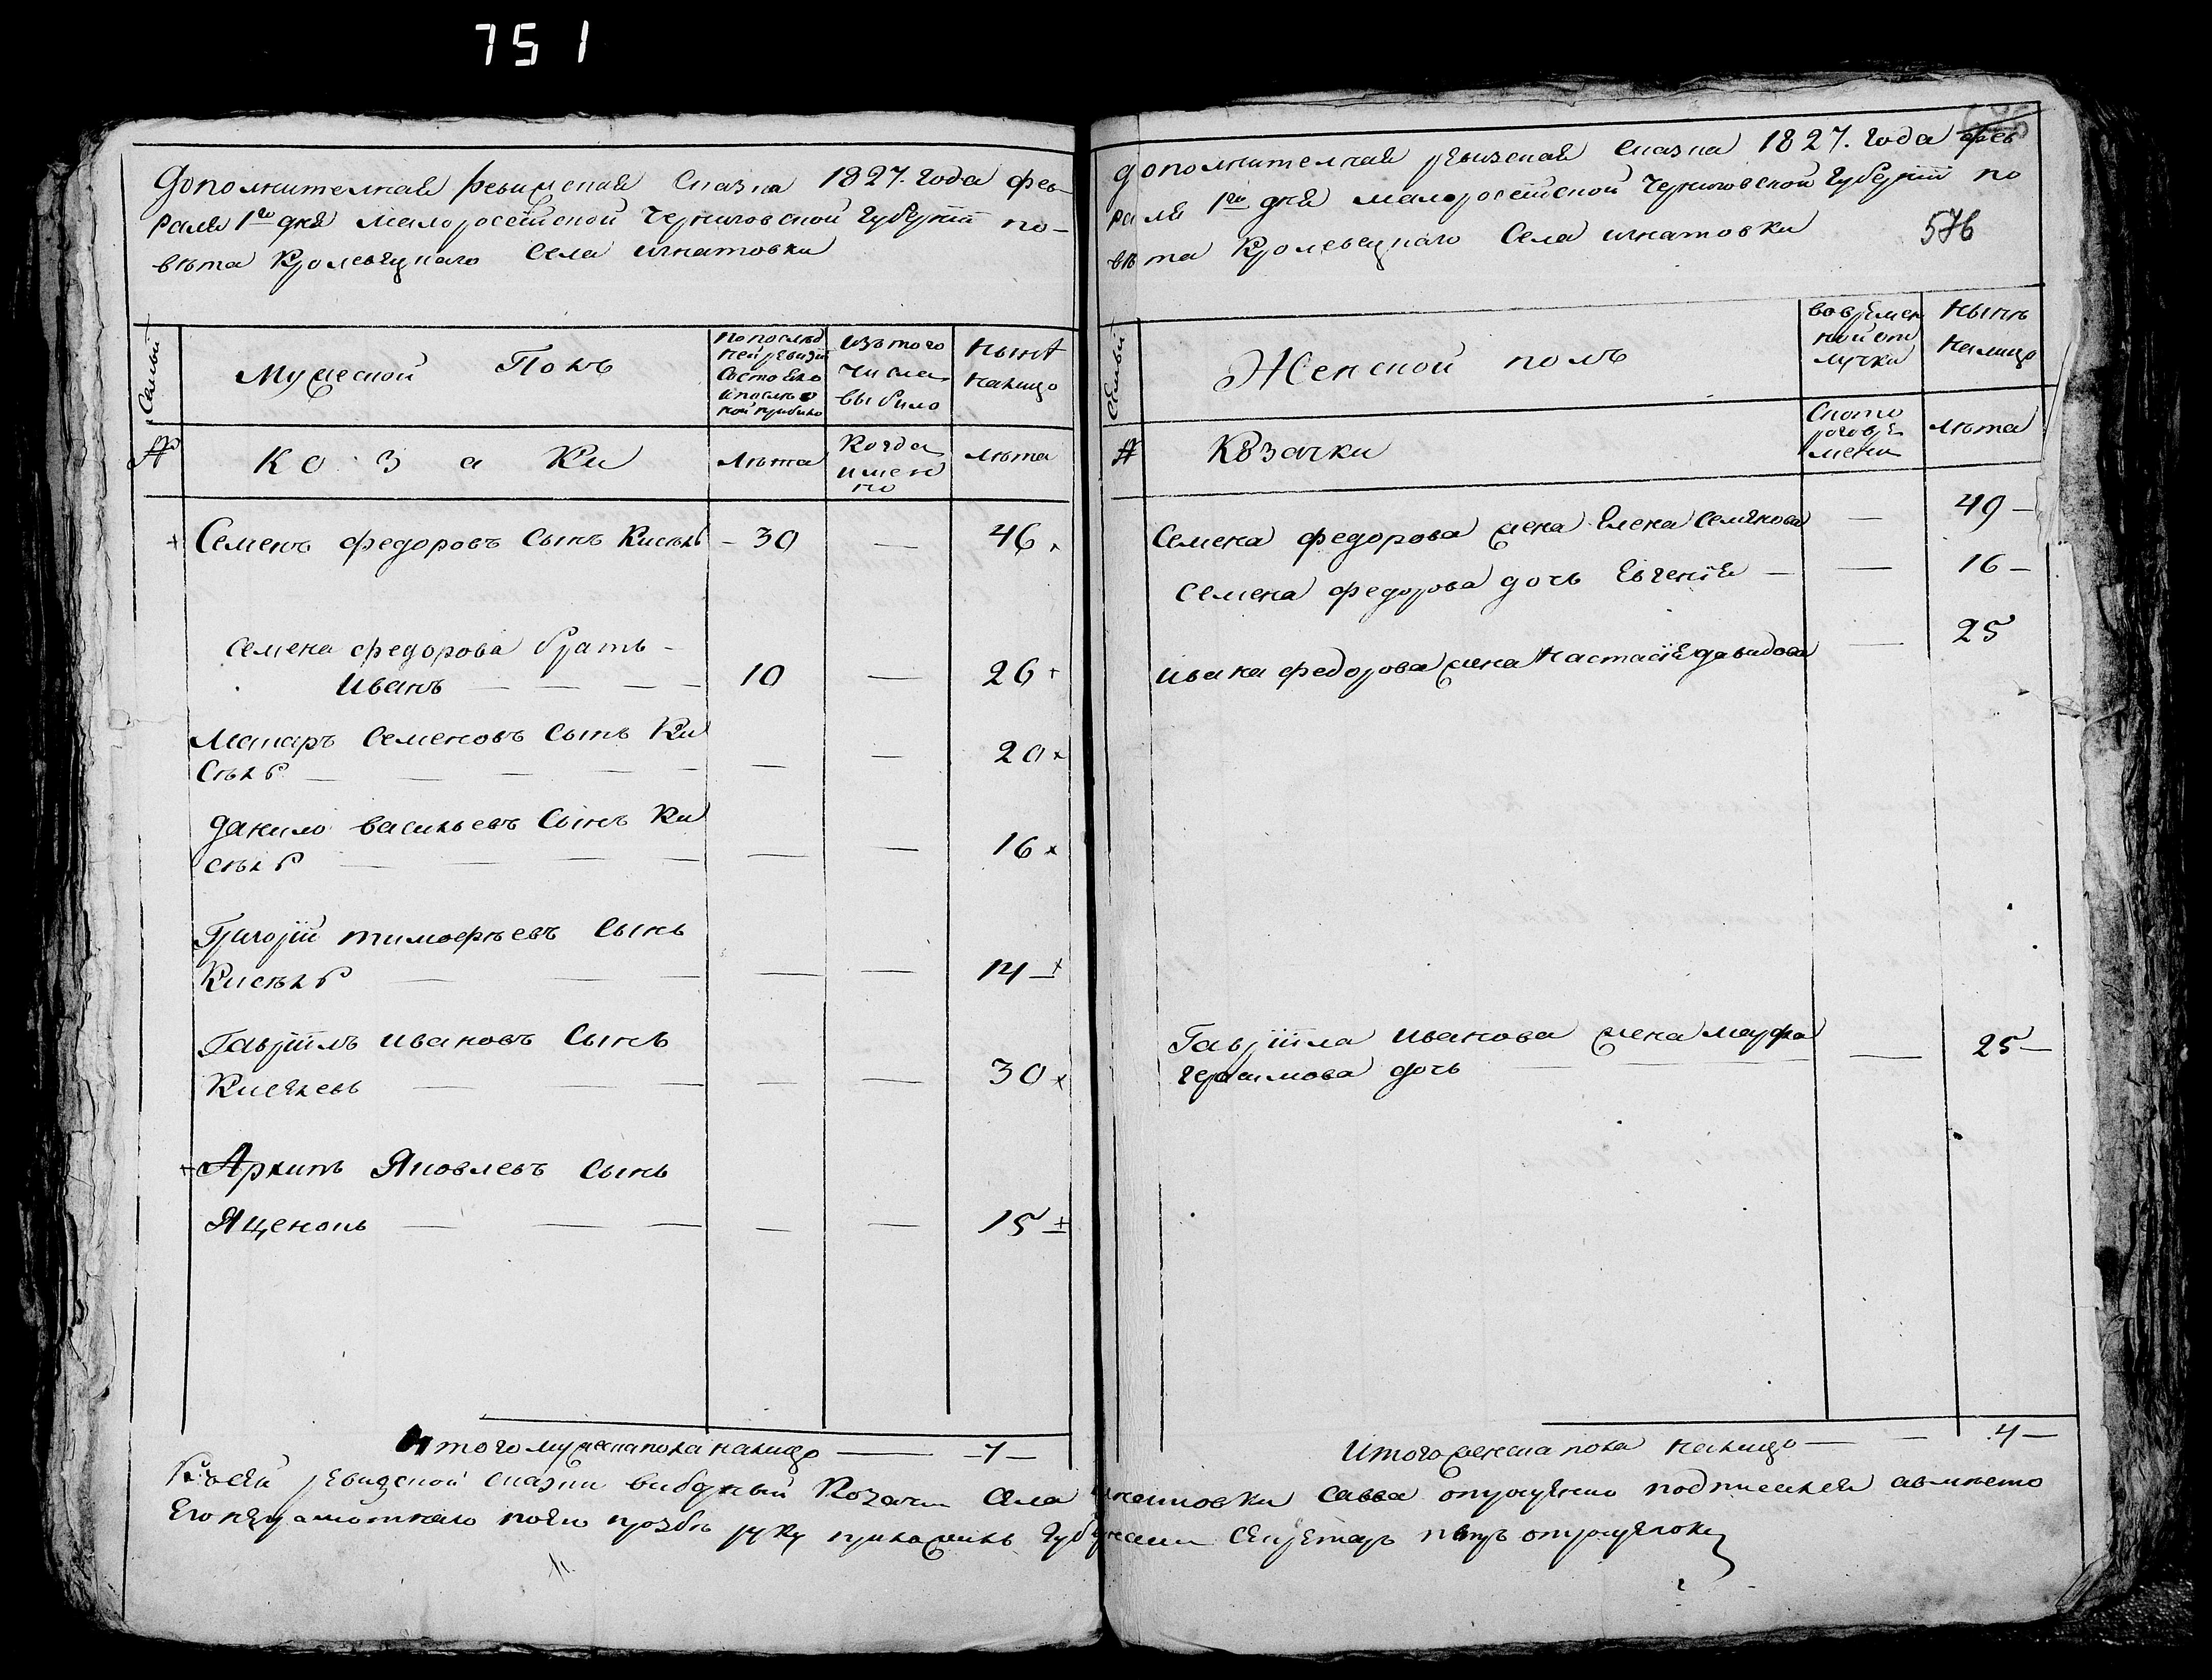 751
Дополнителная ревизская сказка 1827. года фев-
раля 1го дня малоросейской черниговской губернїи по-
вѣта Кролевецкаго села игнатовки
Семьи
Мужеской Полъ
По послѣд
ней ревизїи
состояло
и послѣ о
ной прибило
Изъ того
числа
выбило
Нынѣ
налицо
№
Козаки
Лѣта
Когда
имен
но
лѣта
Семенъ федоровъ сынъ Кисѣль – 30 — 46
Семена федорова братъ –
Иванъ — — — — 10 — 26
Макаръ Семеновъ сынъ Ки
сѣль — — — — — — — 20
Данило васильевъ сынъ Ки
сѣль — — — — — — 16
Григорїй тимофѣевъ сынъ
Кисѣль — — — — — 14 –
Гаврїилъ ивановъ сынъ
Киселевъ — — — — 30
Архипъ Яковлевъ сынъ
Яценокъ — — — — — 15
Итого мужеска пола налицо — 7 —
дополнителная ревизская сказка 1827. года фев
раля 1го дня малоросейской черниговской губернїи по
вѣта Кролевецкаго села игнатовки
576
Семьи
Женской полъ
во времен
ной от
лучки
Нынѣ
налицо
№
Козачки
Ското
рого вре
мени
лѣта
Семена федорова жена Елена семенова — 49 –
Семена федорова дочь Евгенїя – — 16 –
ивана федорова жена Настасїя давидова — 25
Гаврїила иванова жена марфа
герасимова дочь — — — 25 –
Итого женска пола налицо — — 4 –
Къ сей ревизской сказки виборный Козакъ села игнатовки савва опрощенко подписался а вмѣсто
его неграмотнаго по его прозбѣ руку приложилъ губернски секретарь опрощенокъ